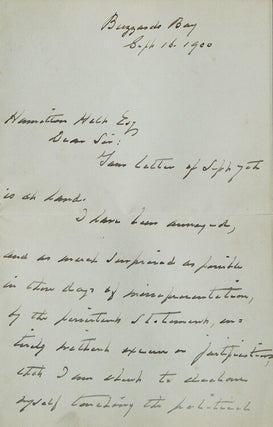 Buzzards Bay
Sept 16. 1900
Hamilton Holt Esq
Dear Sir:
Your letter of Sept 7th
is at hand.
I have been annoyed,
and as much surprised as possible
in these days of misrepresentation,
by the persistent statement, en-
tirely without excuse or justification,
that I am about to declare
myself touching the political